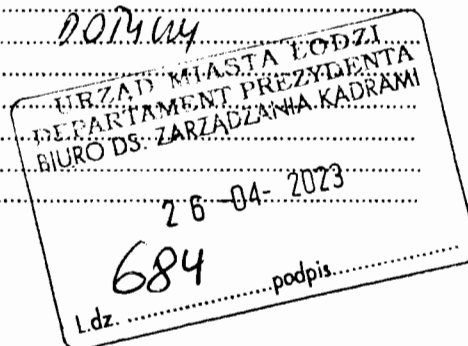 URZĄD MIASTA ŁODZI
DEPARTAMENT PREZYDENTA
BIURO DS. ZARZĄDZANIA KADRAMI
26 -04- 2023
684
L.dz. ............... podpis....................